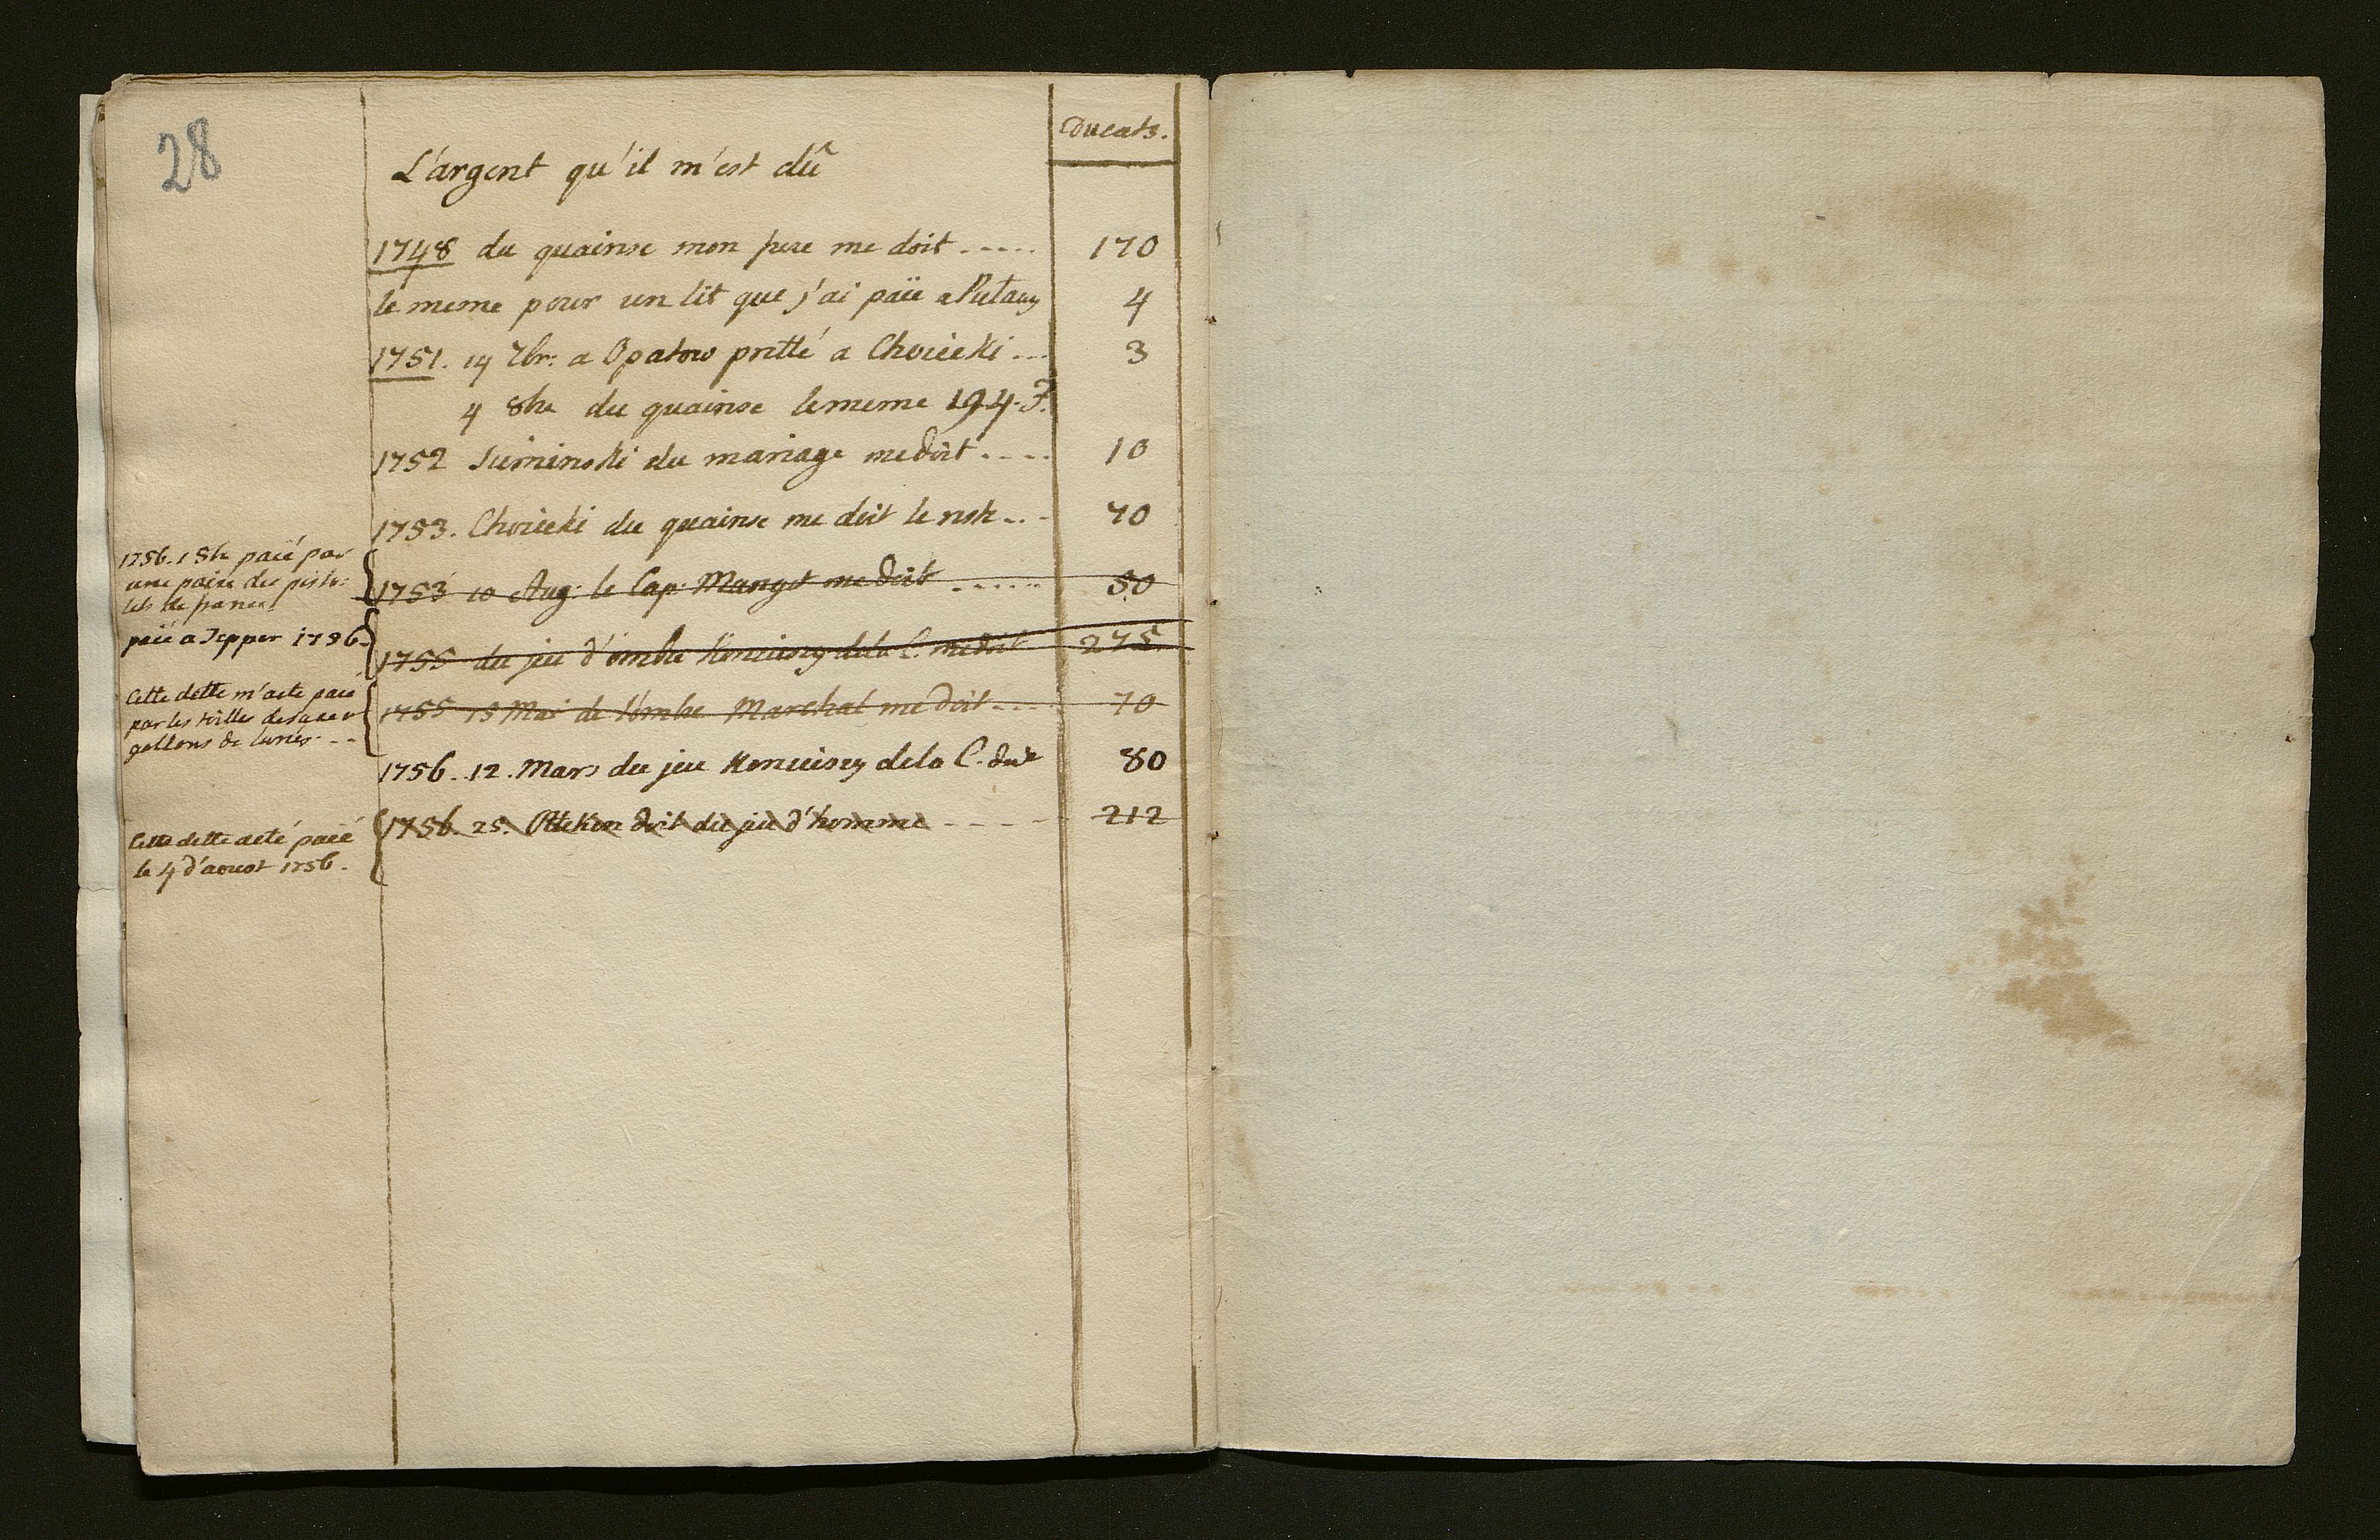 28
Ducats.
L'argent qu'il m'est dû
1748 du quainse mon pere me doit ..... 170
le meme pour un lit que j'ai païe a Pulawy 4
1751. 14 7br: a Opatow pretté a Choiecki ... 3
4 8bre du quainse le meme 194. F.
1752 Suminski du mariage me doit .... 10
1753. Choiecki du quainse me doit le reste ... 70
1756. 1 8br païé par
une paire de pisto:
lets de
1753 10 Aug: le Cap: Mangot me doit ..... 50
païé a Tepper 1756.
1755 du jeu d'ombre Koniuszy de la C. me doit 275
Cette dette m'aete païé
par les toilles
gallons de
1755 15 Mai de l'ombre Marchal me doit .... 70
1756. 12. Mars du jeu Koniuszy de la C. doit 80
Cette dette aeté païé
le 4 d'aoust 1756.
1756. 25. doit du jeu d'homme ..... 212